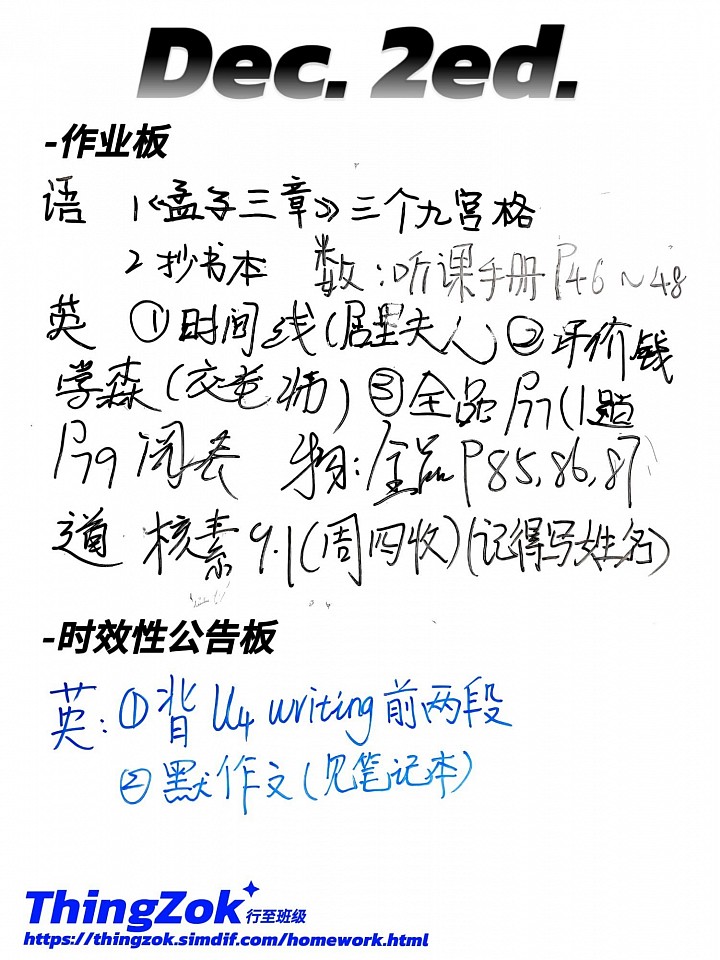 Dec. 2ed.
-作业板
语 1《孟子三章》三个九宫格
2 抄书本 数:听课手册 P46~48
英 ①时间线(居里夫人)②评价钱
学森(交老师)③全品 P77(1题
P79 阅卷 物:全品 P85,86,87
道 核素 9.1(周四收)(记得写姓名)
-时效性公告板
英:①背 U4 writing 前两段
②默作文(见笔记本)
ThingZok 行至班级
https://thingzok.simdif.com/homework.html